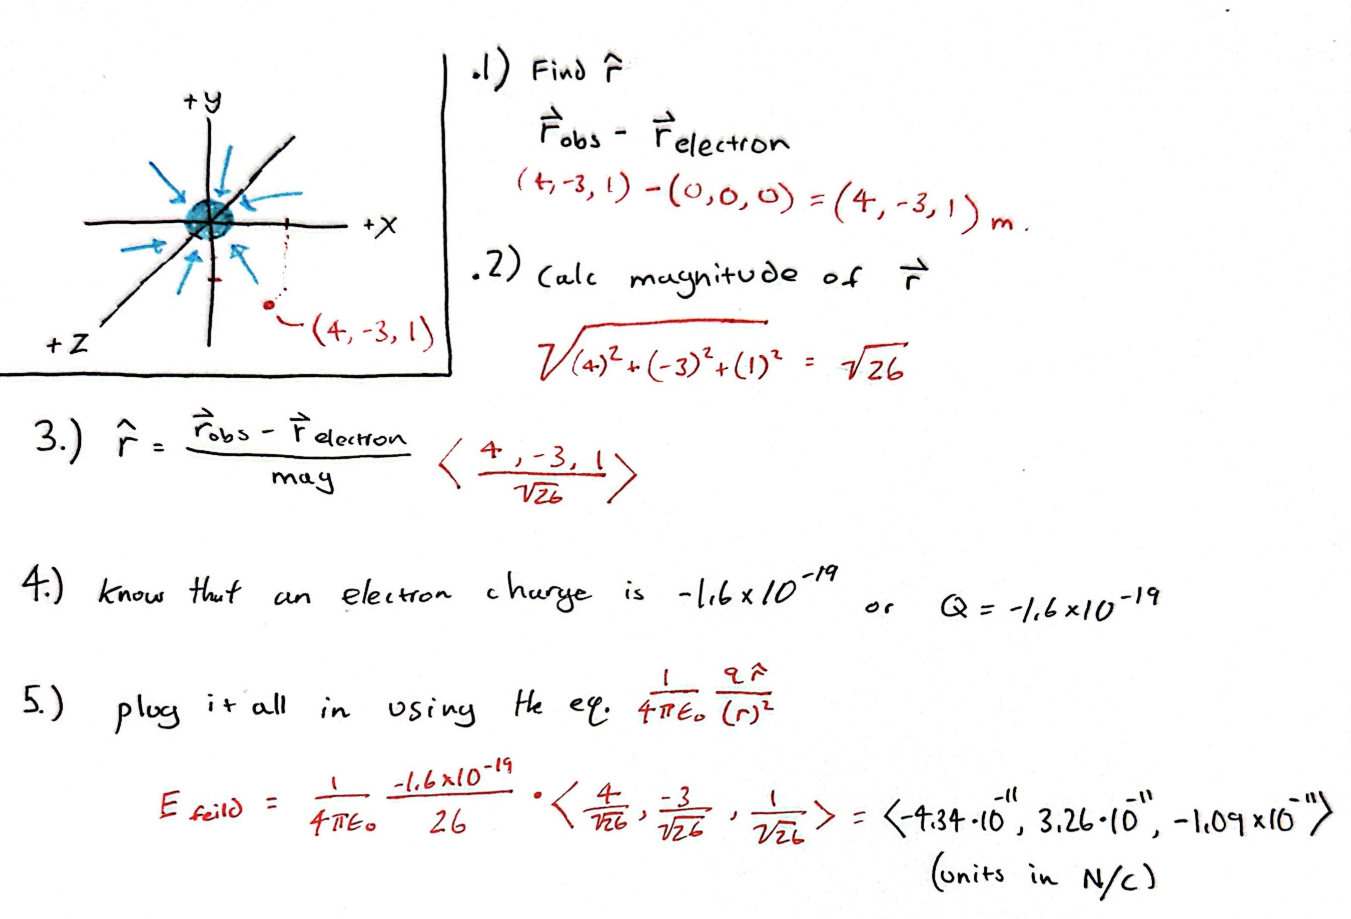 +y
+x
+z
(4, -3, 1)
.1) Find r̂
r⃗obs - r⃗electron
(4, -3, 1) - (0, 0, 0) = (4, -3, 1) m.
.2) Calc magnitude of r⃗
√(4)² + (-3)² + (1)² = √26
3.) r̂ = r⃗obs - r⃗electron / mag < 4, -3, 1 / √26 >
4.) know that an electron charge is -1.6 x 10⁻¹⁹ or Q = -1.6 x 10⁻¹⁹
5.) plug it all in using the eq. 1/4πε₀ q r̂/(r)²
E feild = 1/4πε₀ -1.6 x 10⁻¹⁹/26 • < 4/√26, -3/√26, 1/√26 > = <-4.34·10⁻¹¹, 3.26·10⁻¹¹, -1.09 x 10⁻¹¹>
(units in N/C)